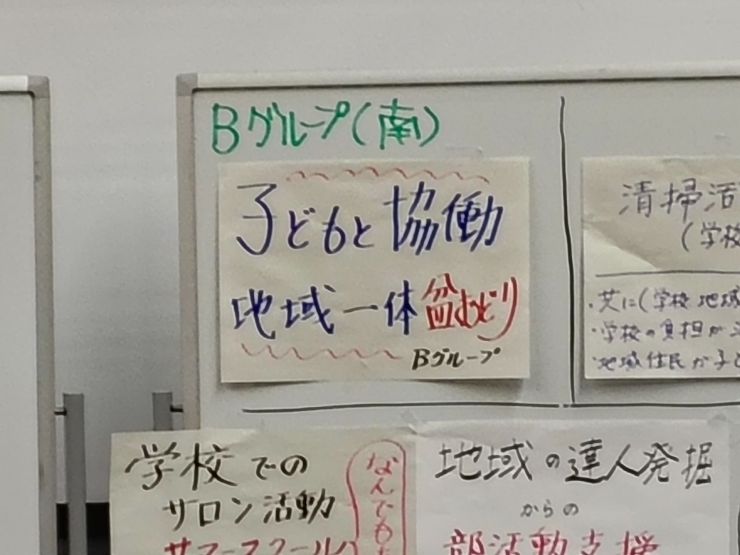 Bグループ(南)
子どもと協働
地域一体盆おどり
Bグループ
清掃活
(学校
・共に(学校 地域
・学校の負担が
・地域住民が子ど
学校での
サロン活動
サマースクール
なんでも
地域の達人発掘
からの
部活動支援